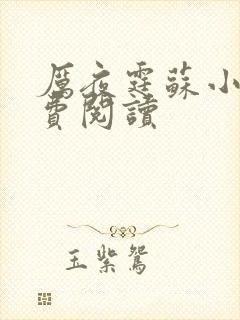 厲夜霆蘇小
費閱讀
玉紫鴛